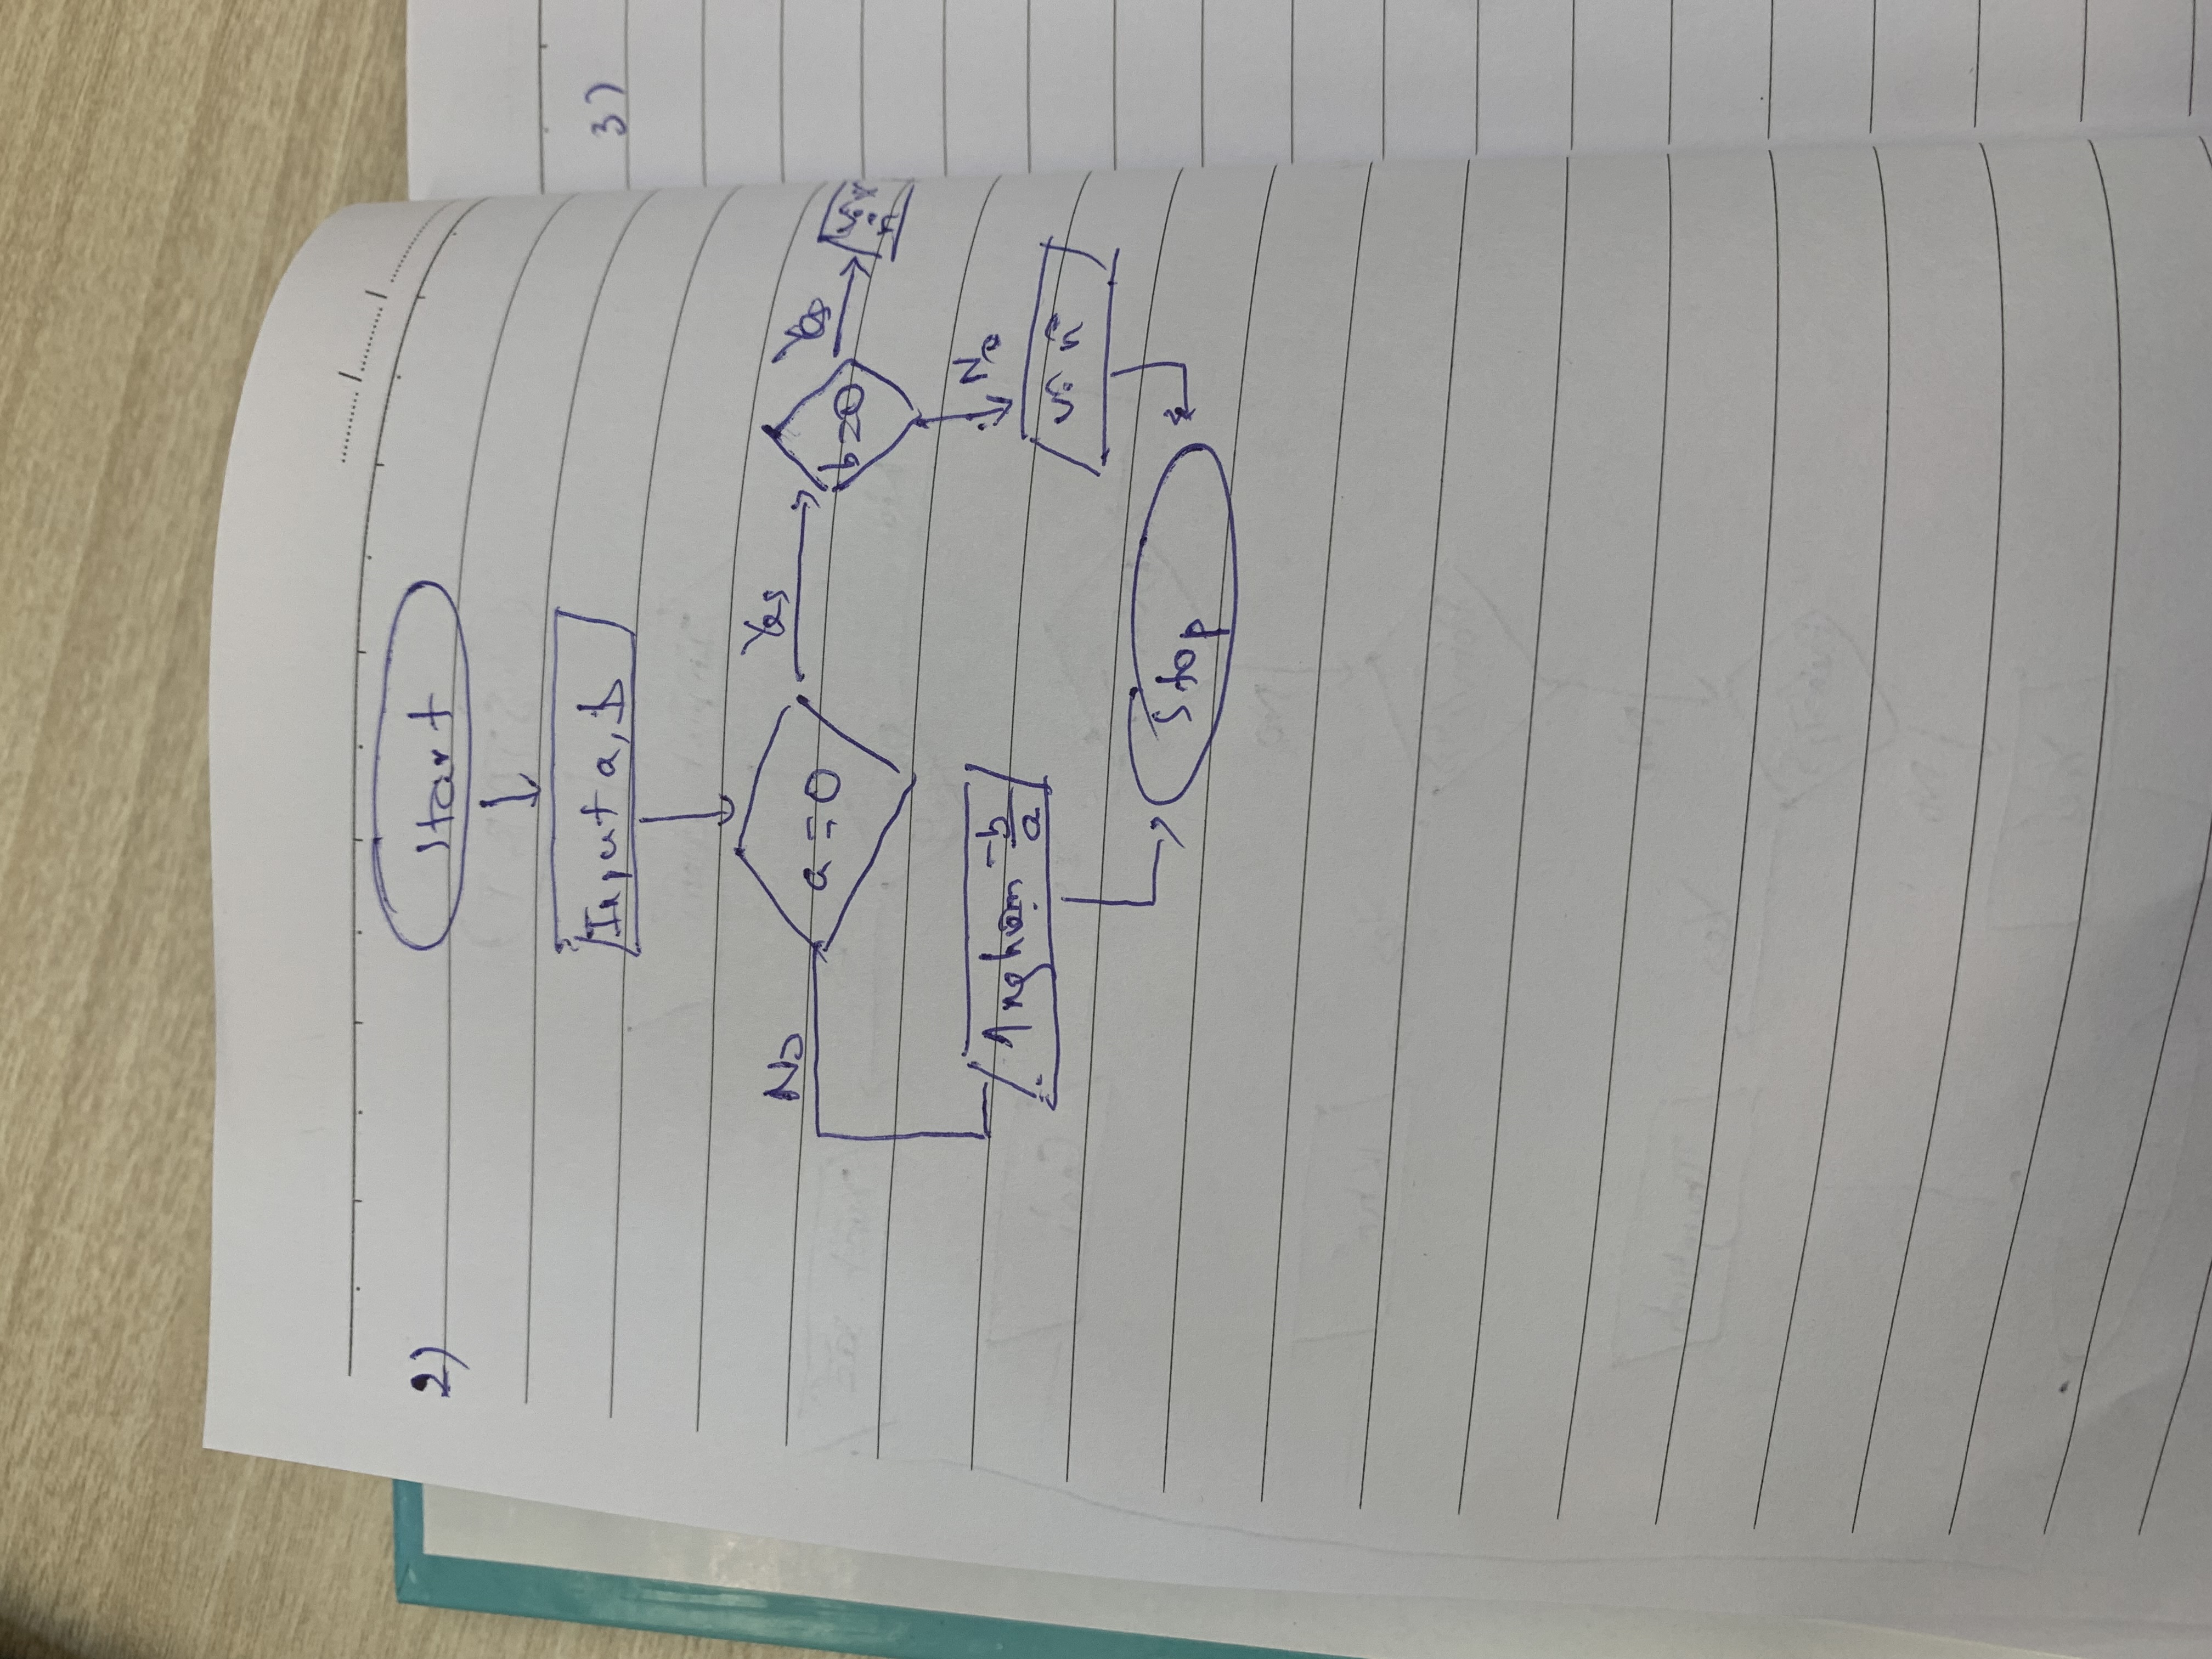 2)
Start
Input a, b
No
a = 0
Yes
b=0
Yes
1 nghiệm -b/a
No
Stop
3)